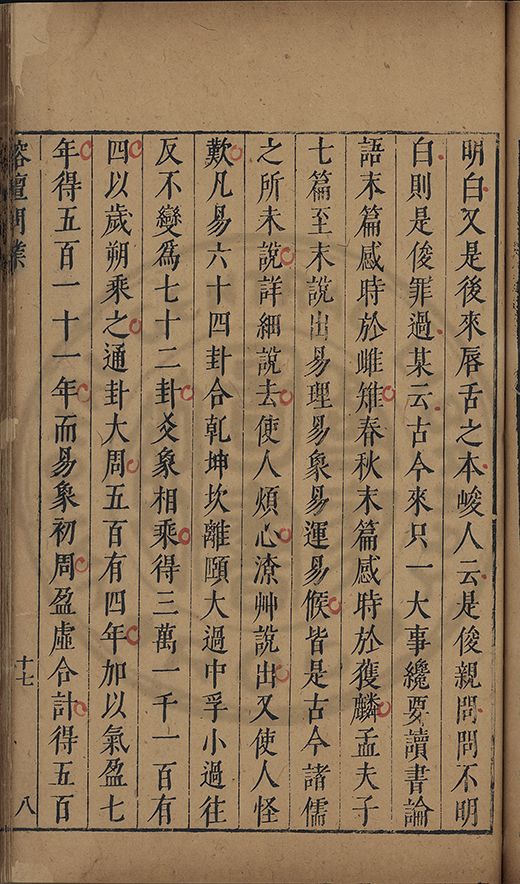 明白又是後來唇舌之本峻人云是俊親問問不明
白則是俊罪過某云古今來只一大事纔要讀書論
語末篇感時於雌雉春秋末篇感時於獲麟孟夫子
七篇至末說出易理易象易運易候皆是古今諸儒
之所未說詳細說去使人煩心潦艸說出又使人怪
歎凡易六十四卦合乾坤坎離頤大過中孚小過往
反不變為七十二卦爻象相乘得三萬一千一百有
四以歲朔乘之通卦大周五百有四年加以氣盈七
年得五百一十一年而易象初周盈虛合計得五百
榕壇問業
十七
八